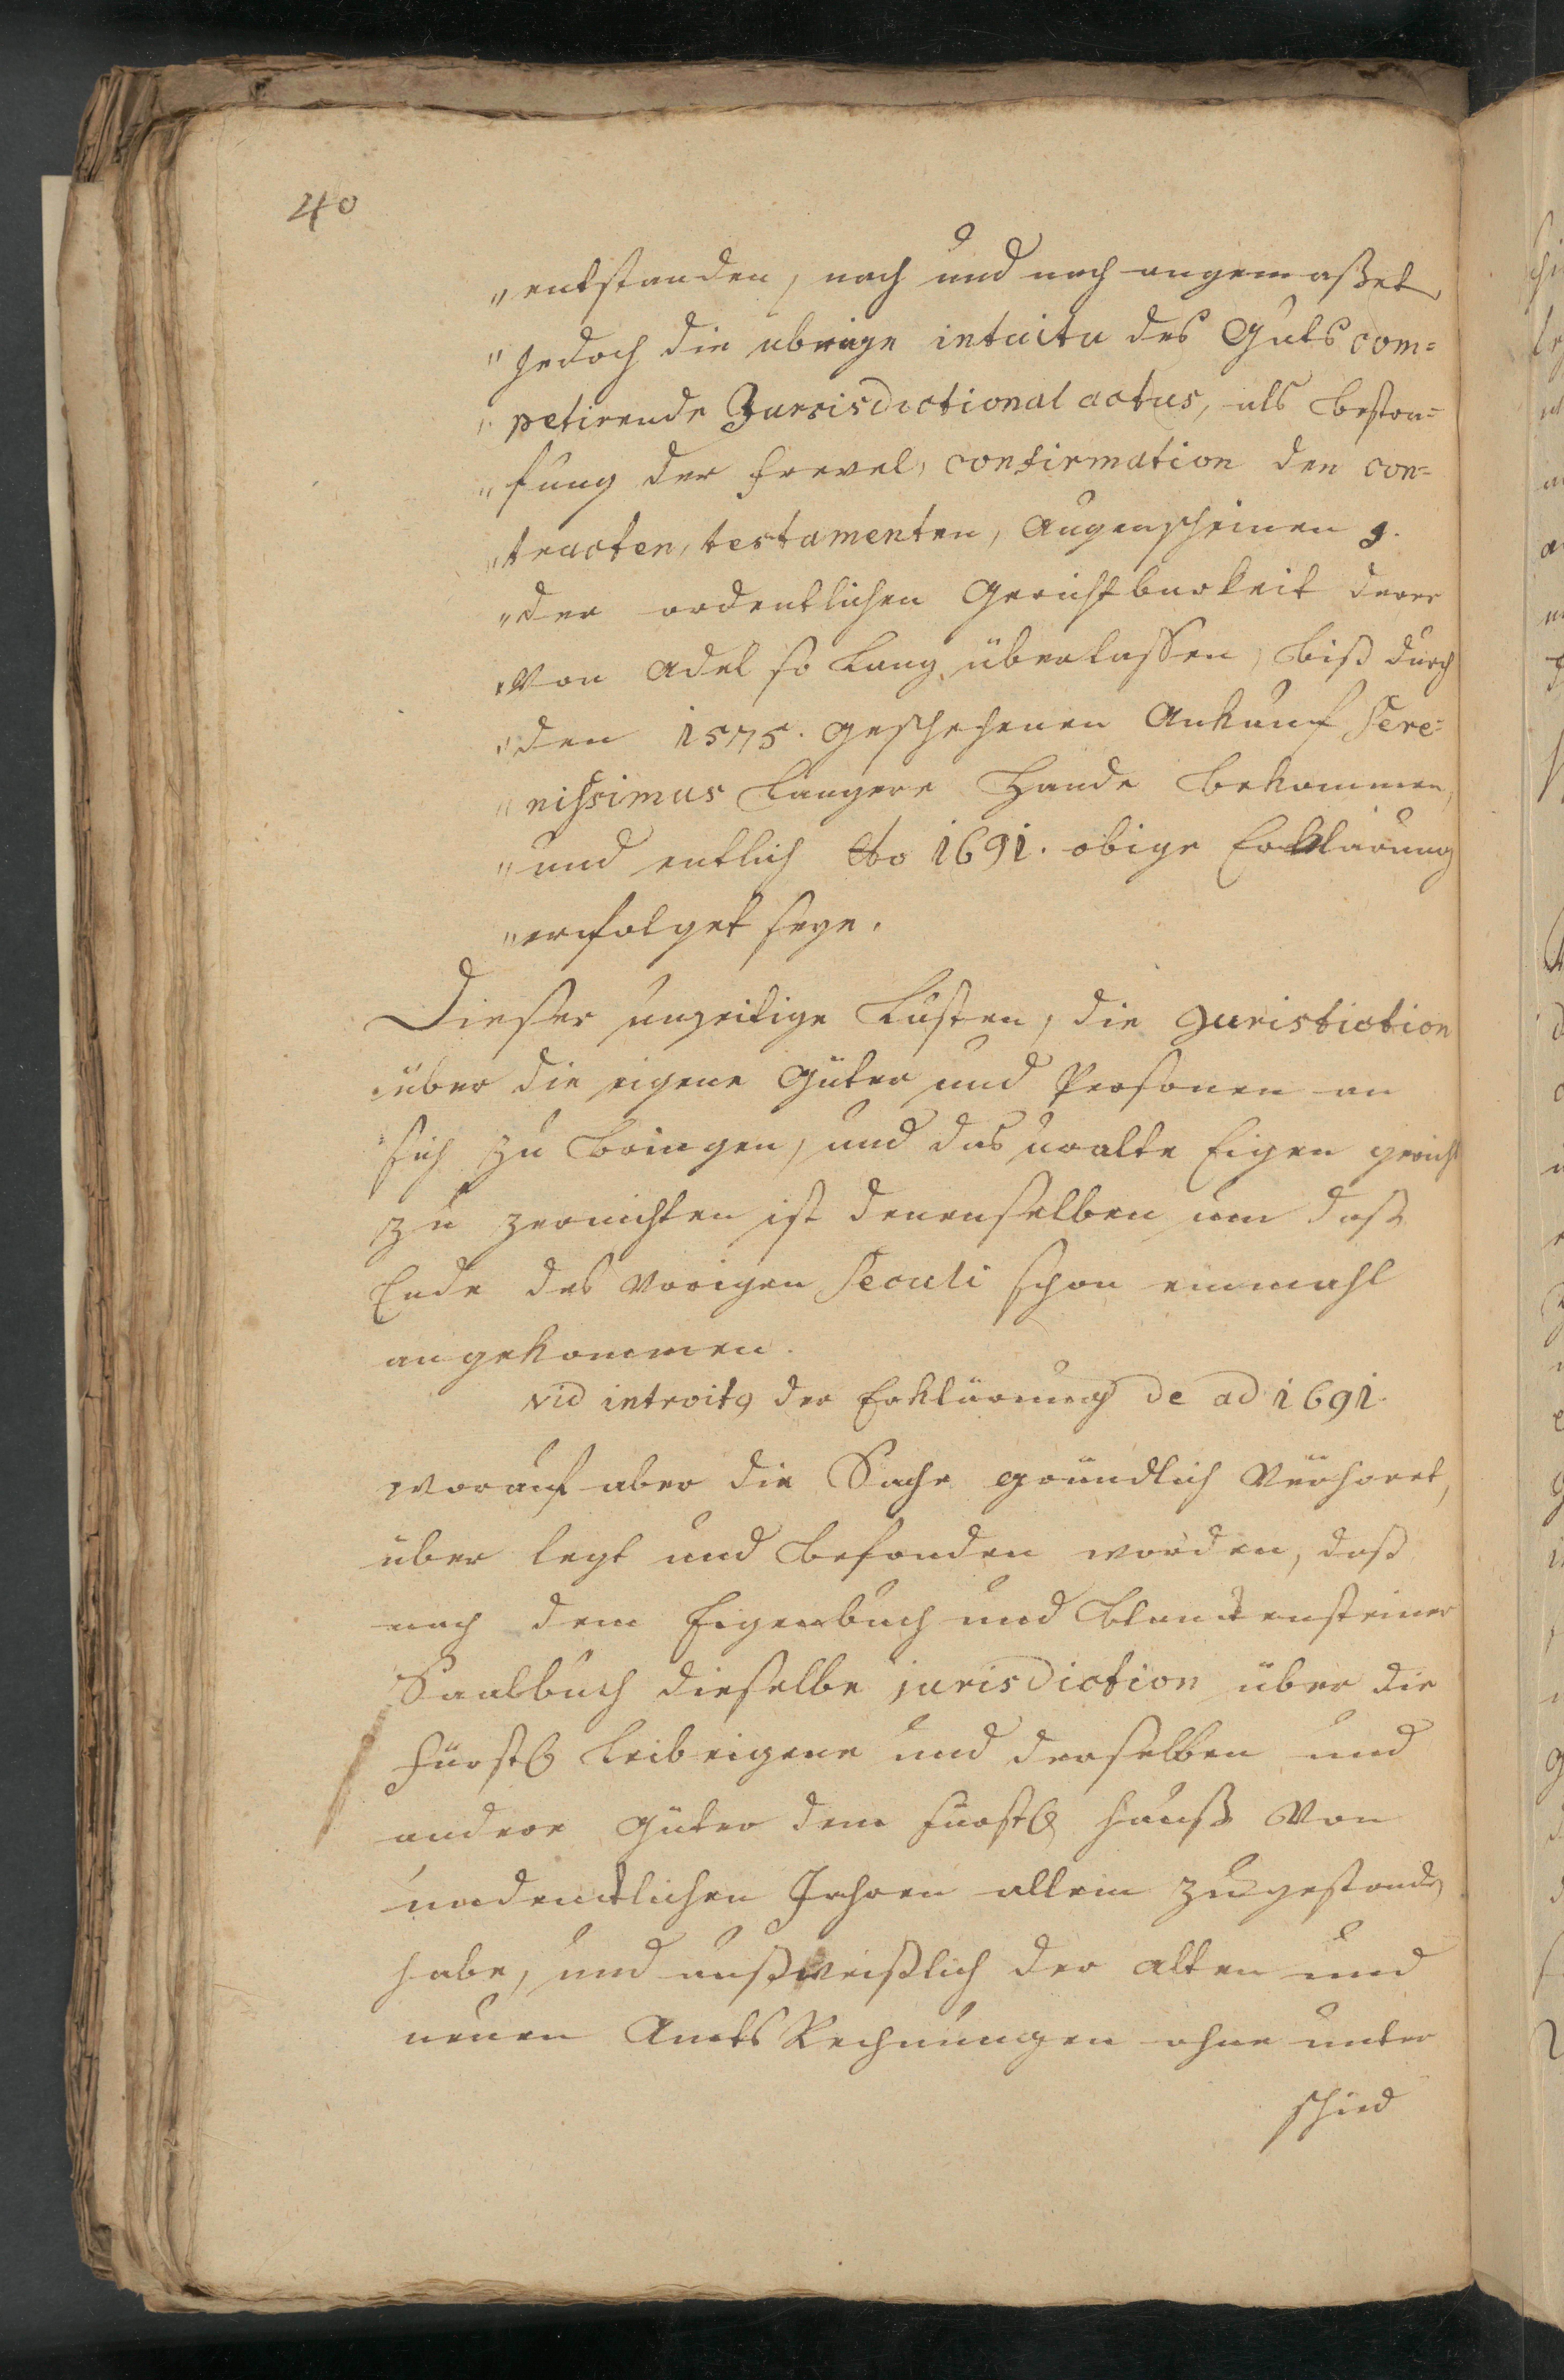 40
„entstanden, nach und nach angemaßet,
„Jedoch die übrige intuitu des Guts com=
„petirende Jurisdictional actus, als bestra=
„fung der frevel, confirmation den con=
„tracten, testamenten, Augenscheinen
„der ordentlichen Gerichtbarkeit derer
„Von Adel so lang überlassen, biß durch
„den 1575. geschehenen Ankauf Sere=
„nissimus längere Hände bekommen,
„und entlich Ao 1691. obige Erklärung
„erfolget seye.
Dieser unzeitige Lusten, die Juristiction
über die eigene Güter und Personen an
sich zu bringen, und das uralte Eigen gericht
zu zernichten ist denenselben um das
Ende des Vorigen Seculi schon einmahl
angekommen.
vid introitg der Erklärung de ad 1691.
worauf aber die Sache gründlich Verhöret,
über legt und befunden worden, daß
nach dem Eigenbuch und Blanckensteiner
Saalbuch dieselbe jurisdiction über die
fürstl leibeigene und derselben und
andere Güter dem fürstl Hauß Von
undencklichen Jahren allein zugestanden
habe, und außweißlich der alten und
neuen Amts Rechnungen ohne unter
schied